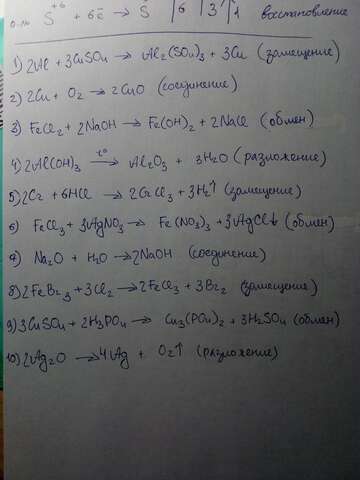 S⁺⁶ + 6ē → S | 6 | 3 | 1 восстановление
1) 2Al + 3CuSO₄ → Al₂(SO₄)₃ + 3Cu (замещение)
2) 2Cu + O₂ → 2CuO (соединение)
3) FeCl₂ + 2NaOH → Fe(OH)₂ + 2NaCl (обмен)
4) 2Al(OH)₃ t° → Al₂O₃ + 3H₂O (разложение)
5) 2Cr + 6HCl → 2CrCl₃ + 3H₂↑ (замещение)
6) FeCl₃ + 3AgNO₃ → Fe(NO₃)₃ + 3AgCl↓ (обмен)
7) Na₂O + H₂O → 2NaOH (соединение)
8) 2FeBr₃ + 3Cl₂ → 2FeCl₃ + 3Br₂ (замещение)
9) 3CuSO₄ + 2H₃PO₄ → Cu₃(PO₄)₂ + 3H₂SO₄ (обмен)
10) 2Ag₂O → 4Ag + O₂↑ (разложение)